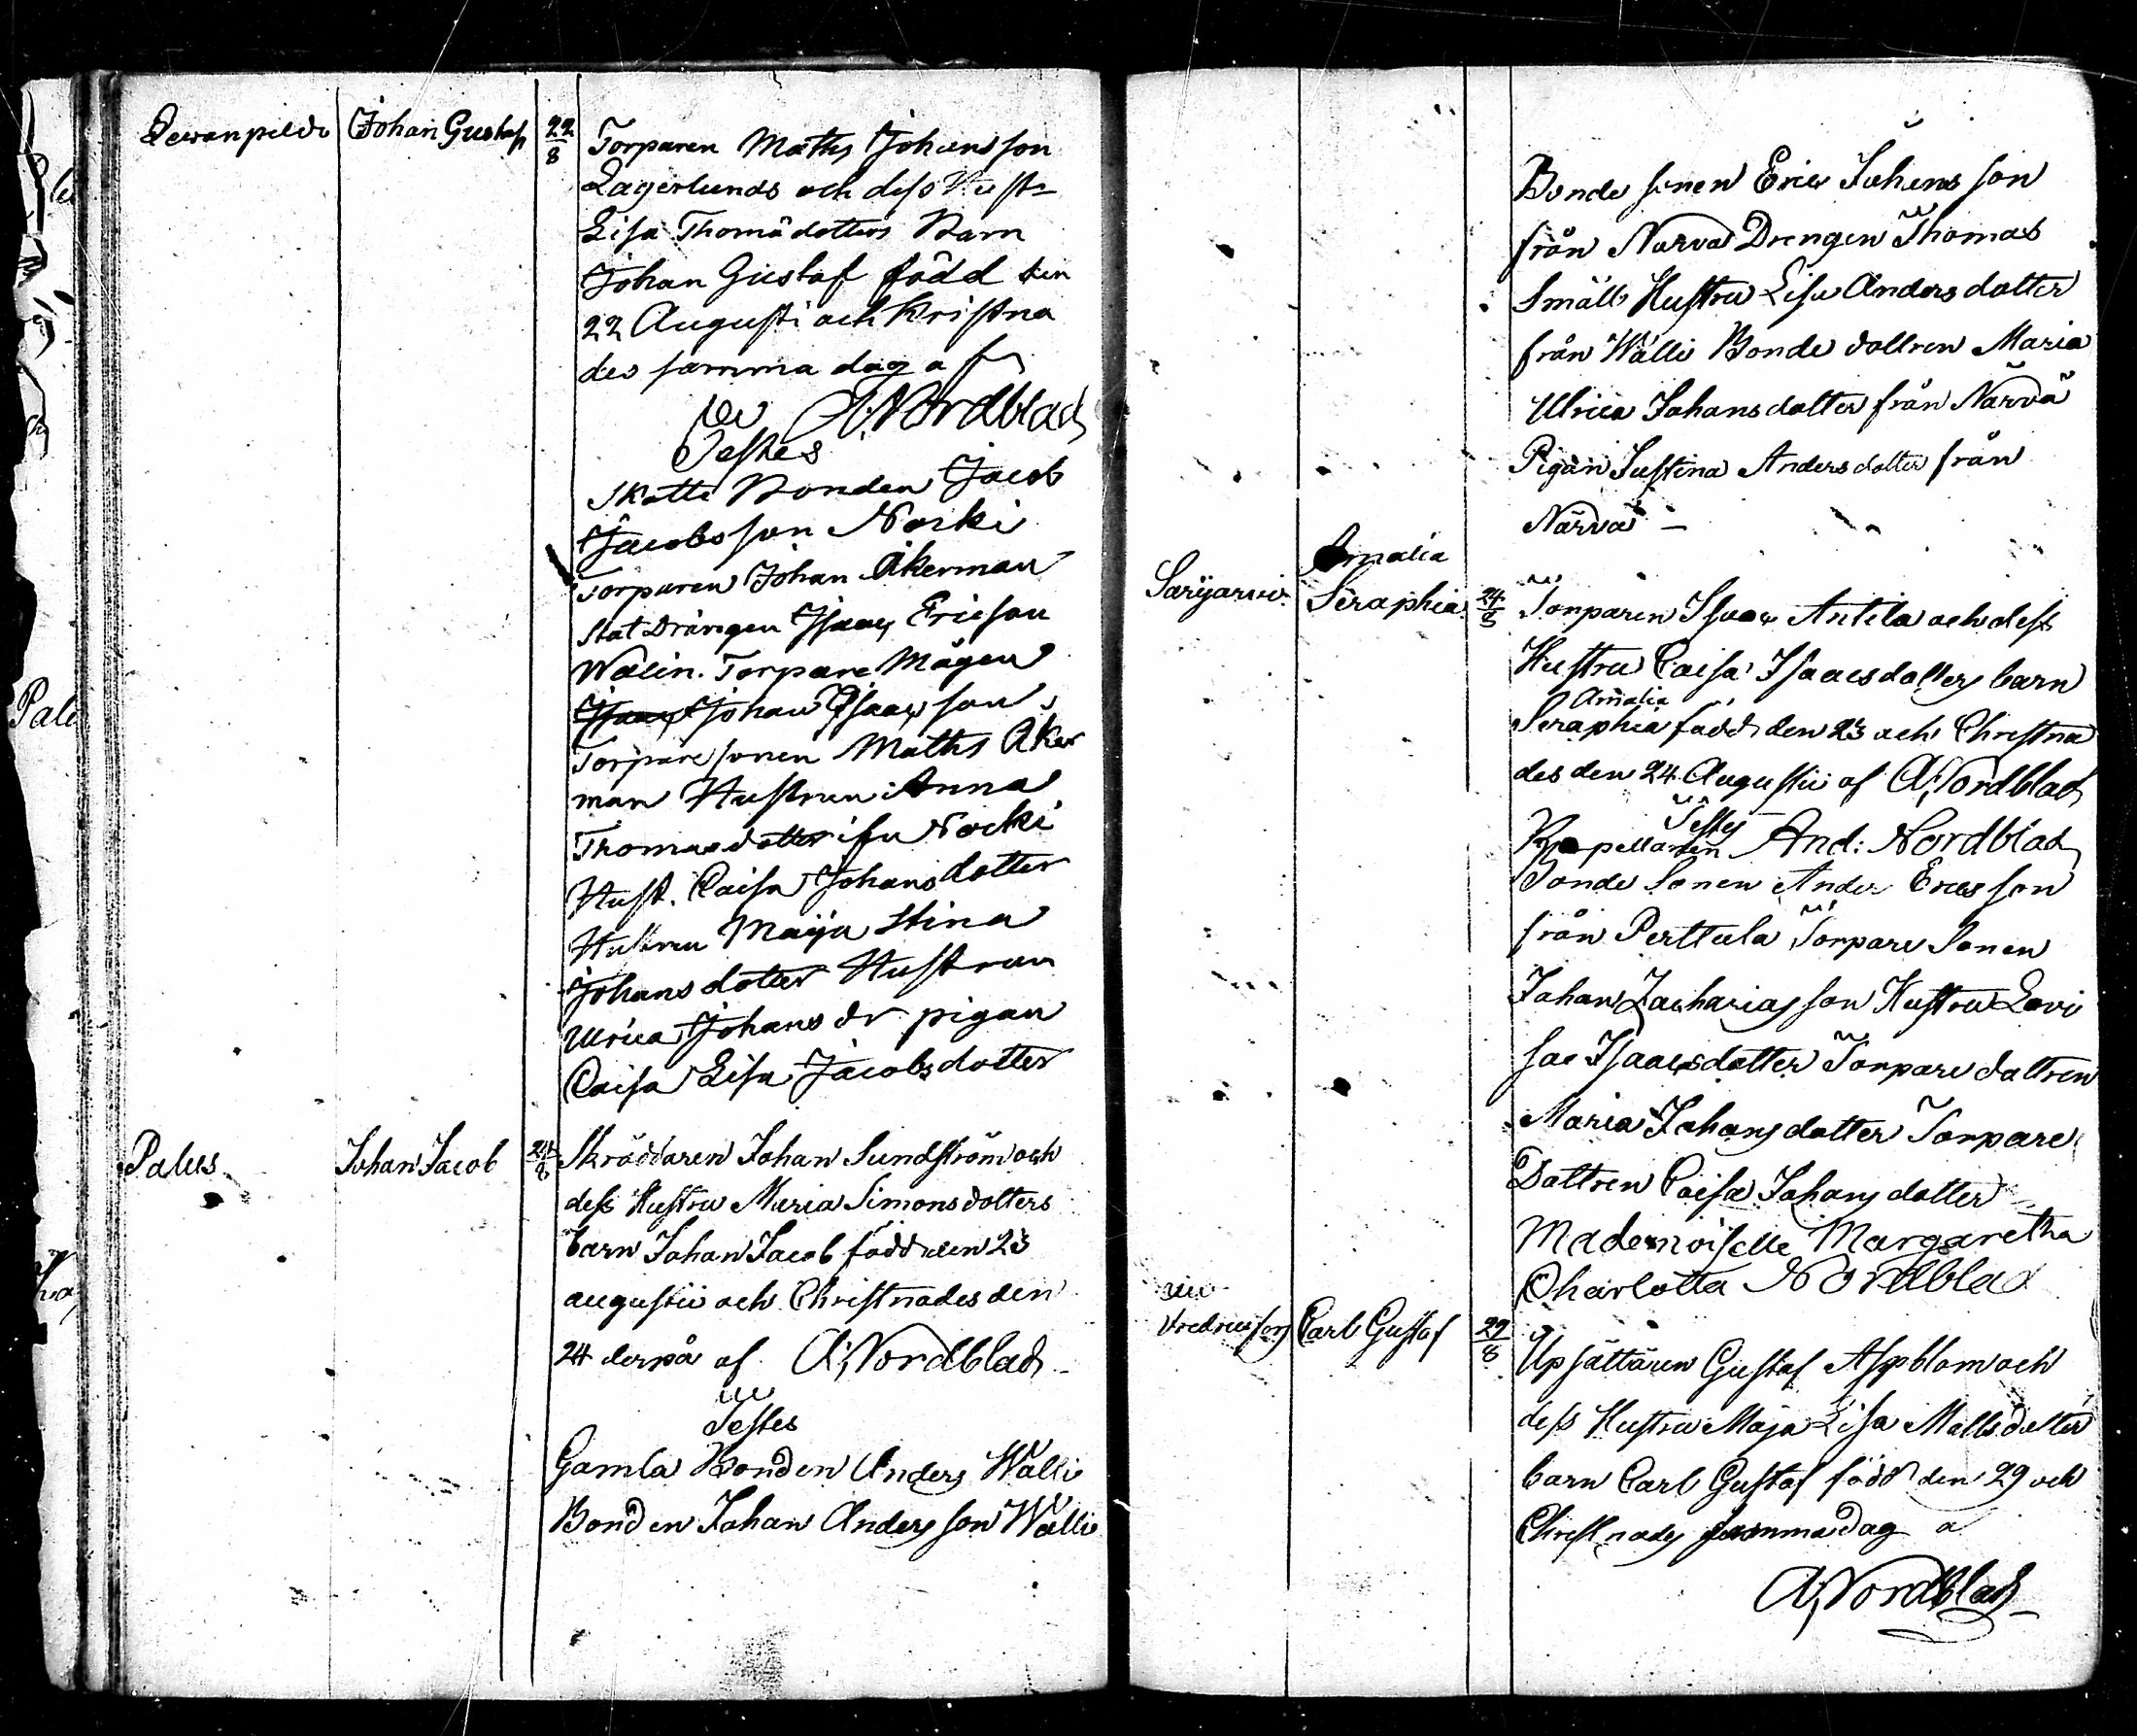 Johan Gustaf
22/8
Torparen Maths Johansson
Lagerlunds och dess Hust=
Lisa Thomædotters Barn
Johan Gustaf född den
22 Augusti och Kristna
des samma dag af
A: Nordblad
Testes
Skatte Bonden Jacob
Jacobsson Nocki
Torparen Johan Åkerman
Stat Drängen Isaac Ericson
Walin. Torpare Mågen
Isaac Johan Isaacsson
Torpare sonen Maths Åker
man Hustrun Anna
Thomasdotter ifrn Nocki
Hust. Caisa Johansdotter
Hustrun Maija Stina
Johans dotter Hustrun
Ulrica Johans dr pigan
Caisa Lisa Jacobsdotter
Palus
Johan Jacob
24/8
Skräddaren Johan Sundström och
dess Hustru Maria Simonsdotters
barn Johan Jacob född den 23
augustii och Christnades den
24 derpå af A: Nordblad
Testes
Gamla Bonden Anders Wälli
Bonden Johan Andersson Wälli
Bonde sonen Eric Johansson
från Närvä Drengen Thomas
Smäll Hustru Lisa Andersdotter
från Wälli Bonde dottren Maria
Ulrica Johansdotter från Närvä
Pigan Justina Andersdotter från
Närvä –
Amalia
Sarijarvi
Seraphia
24/8
Torparen Isaac Antila och dess
Hustru Caisa Isaacsdotters barn
Amalia
Seraphia född den 23 och Christna
des den 24 Augustii af A: Nordblad
Testes
Kapellanen And: Nordblad
Bonde Sonen Ander Ericsson
från Perttula Torpare Sonen
Johan Zachariasson Hustru Lovi
sa Isaacsdotter Torpare dottren
Maria Johansdotter Torpare
Dottren Caisa Johansdotter
Mademoiselle Margaretha
Charlotta Nordblad
Carl Gustaf
29/8
Upsättaren Gustaf Aspblom och
dess Hustru Maja Lisa Mattsdotter
barn Carl Gustaf född den 29 och
Christnades samma dag a
A: Nordblad